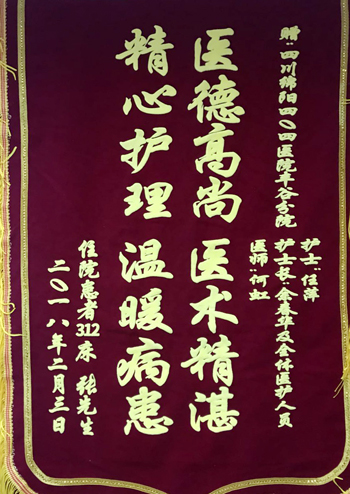 赠：四川绵阳四〇四医院丰谷分院
护士：任萍
护士长：金春华及全体医护人员
医师：何虹
医德高尚 医术精湛
精心护理 温暖病患
住院患者312床 张先生
二〇一八年二月三日